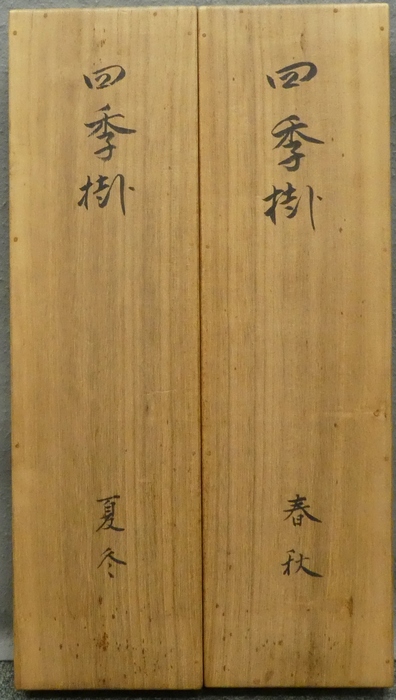 四季掛
春秋
四季掛
夏冬